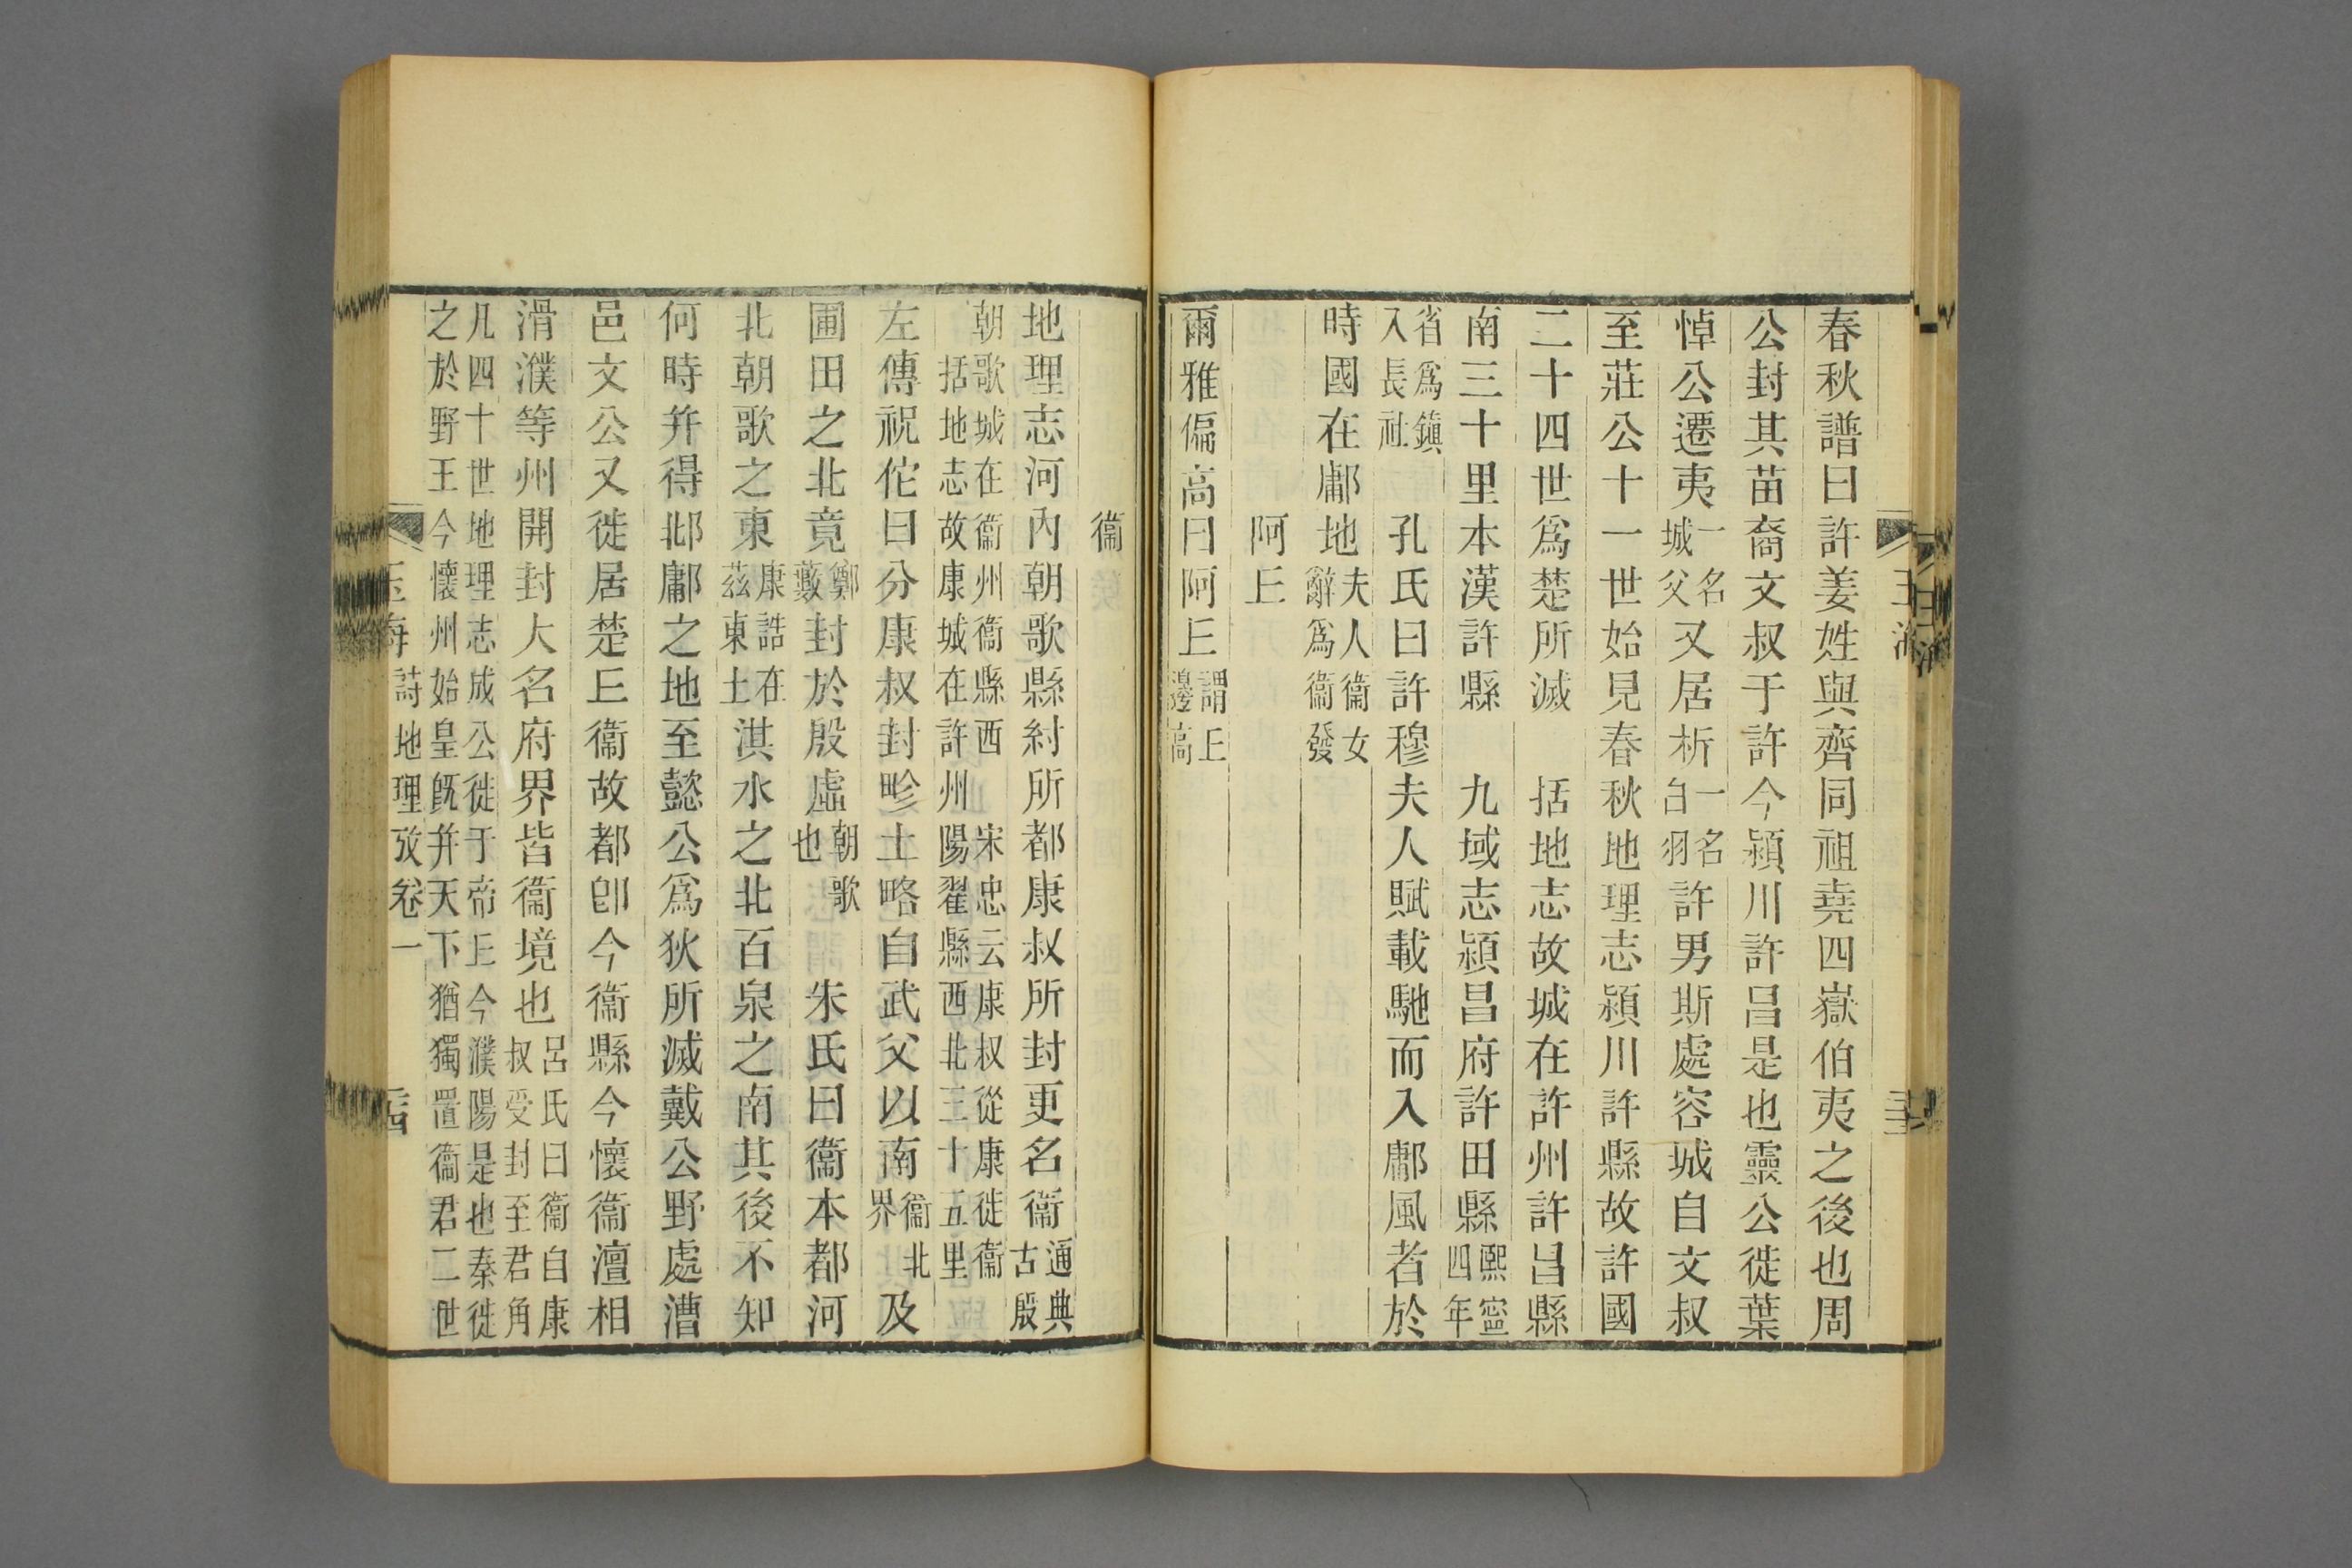 春秋譜曰許姜姓與齊同祖堯四嶽伯夷之後也周
公封其苗裔文叔于許今潁川許昌是也靈公徙葉
悼公遷夷一名城父又居析一名白羽許男斯處容城自文叔
至莊公十一世始見春秋地理志潁川許縣故許國
二十四世爲楚所滅 括地志故城在許州許昌縣
南三十里本漢許縣 九域志潁昌府許田縣熙寧四年
省爲鎭入長社 孔氏曰許穆夫人賦載馳而入鄘風者於
時國在鄘地夫人衞女辭爲衞發
阿丘
爾雅偏高曰阿丘謂上邊高
衞
地理志河內朝歌縣紂所都康叔所封更名衞通典古殷
朝歌城在衞州衞縣西 宋忠云康叔從康徙衞括地志故康城在許州陽翟縣西北三十五里
左傳祝佗曰分康叔封畛土略自武父以南衞北界及
圃田之北竟鄭藪封於殷虛朝歌也 朱氏曰衞本都河
北朝歌之東康誥在茲東土淇水之北百泉之南其後不知
何時幷得邶鄘之地至懿公爲狄所滅戴公野處漕
邑文公又徙居楚丘衞故都卽今衞縣今懷衞澶相
滑濮等州開封大名府界皆衞境也呂氏曰衞自康叔受封至君角
凡四十世地理志成公徙于帝丘今濮陽是也秦徙之於野王今懷州始皇旣幷天下猶獨置衞君二世
玉海 詩地理攷卷一 二四